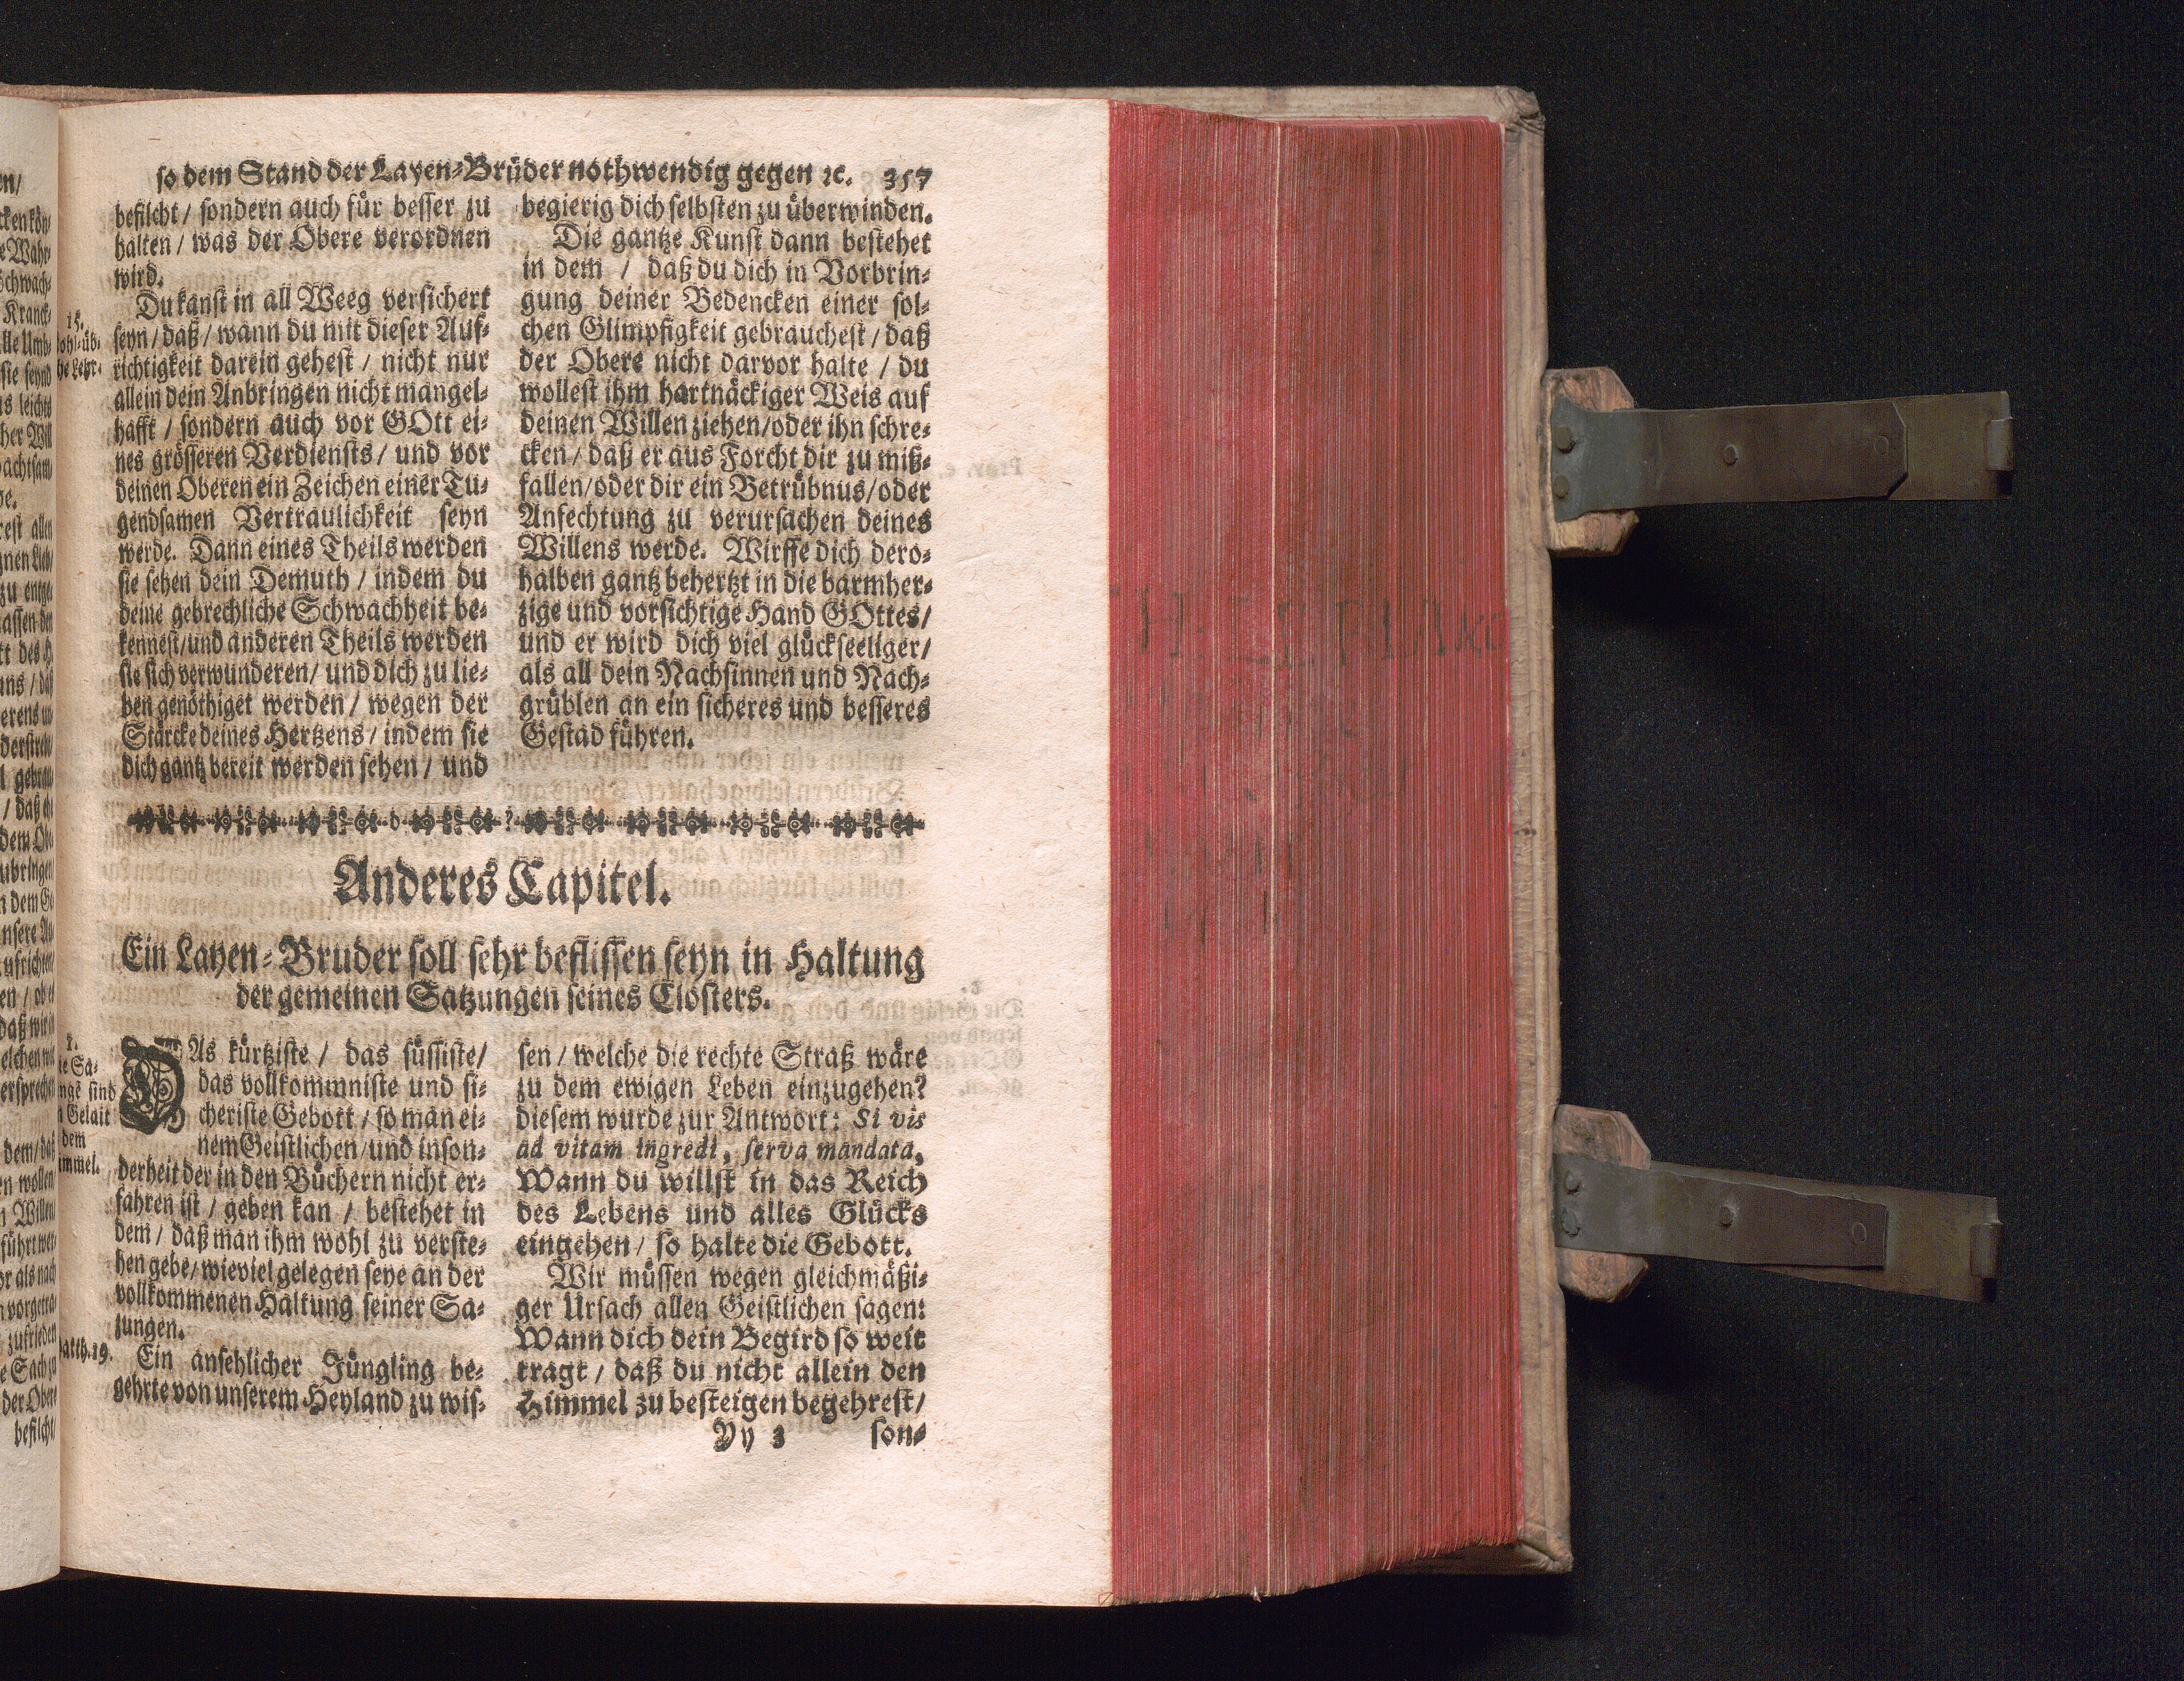 so dem Stand der Layen-Brüder nothwendig gegen ꝛc. 357
befilcht / sondern auch für besser zu
halten / was der Obere verordnen
wird.
15.
Du kanst in all Weeg versichert
seyn / daß / wann du mit dieser Auf-
richtigkeit darein gehest / nicht nur
allein dein Anbringen nicht mangel-
hafft / sondern auch vor GOtt ei-
nes grösseren Verdiensts / und vor
deinen Oberen ein Zeichen einer Tu-
gendsamen Vertraulichkeit seyn
werde. Dann eines Theils werden
sie sehen dein Demuth / indem du
deine gebrechliche Schwachheit be-
kennest / und anderen Theils werden
sie sich verwunderen / und dich zu lie-
ben genöthiget werden / wegen der
Stärcke deines Hertzens / indem sie
dich gantz bereit werden sehen / und
begierig dich selbsten zu überwinden.
Die gantze Kunst dann bestehet
in dem / daß du dich in Vorbrin-
gung deiner Bedencken einer sol-
chen Glimpfigkeit gebrauchest / daß
der Obere nicht darvor halte / du
wollest ihm hartnäckiger Weis auf
deinen Willen ziehen / oder ihn schre-
cken / daß er aus Forcht dir zu miß-
fallen / oder dir ein Betrübnus / oder
Anfechtung zu verursachen deines
Willens werde. Wirffe dich dero-
halben gantz behertzt in die barmher-
zige und vorsichtige Hand GOttes /
und er wird dich viel glückseeliger /
als all dein Nachsinnen und Nach-
grüblen an ein sicheres und besseres
Gestad führen.
Anderes Capitel.
Ein Layen-Bruder soll sehr beflissen seyn in Haltung
der gemeinen Satzungen seines Closters.
DAs kürtziste / das süssiste /
das vollkommniste und si-
cheriste Gebott / so man ei-
nem Geistlichen / und inson-
derheit der in den Büchern nicht er-
fahren ist / geben kan / bestehet in
dem / daß man ihm wohl zu verste-
hen gebe / wieviel gelegen seye an der
vollkommenen Haltung seiner Sa-
zungen.
Ein ansehlicher Jüngling be-
gehrte von unserem Heyland zu wis-
sen / welche die rechte Straß wäre
zu dem ewigen Leben einzugehen?
diesem wurde zur Antwort: Si vis
ad vitam ingredi, serva mandata,
Wann du willst in das Reich
des Lebens und alles Glücks
eingehen / so halte die Gebott.
Wir müssen wegen gleichmäßi-
ger Ursach allen Geistlichen sagen:
Wann dich dein Begird so weit
tragt / daß du nicht allein den
Himmel zu besteigen begehrest /
Yy 3 son-